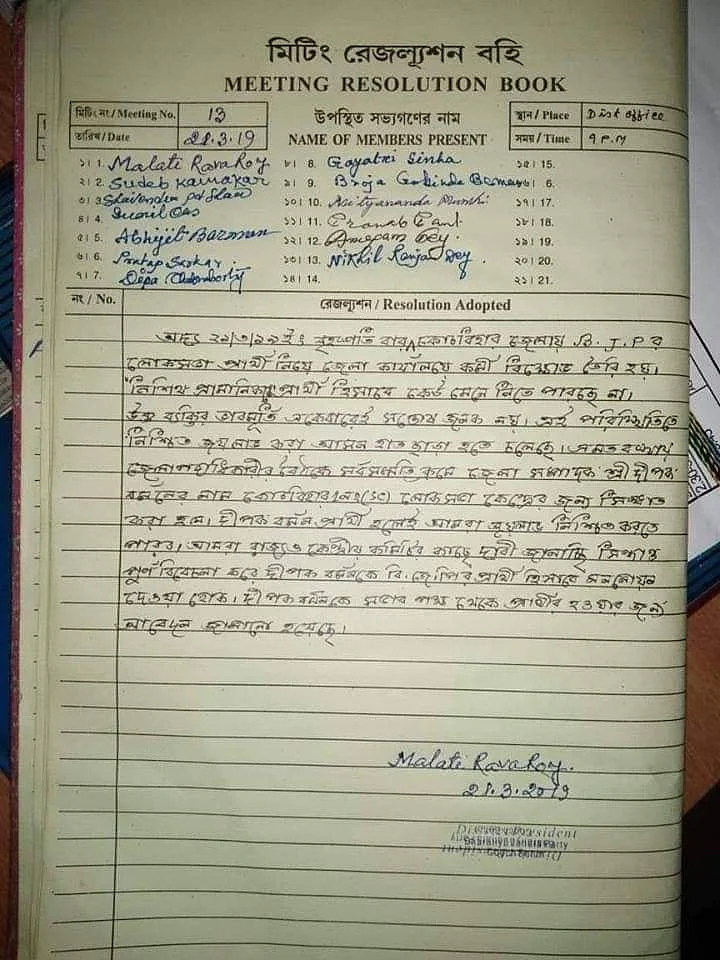 মিটিং রেজল্যুশন বহি
MEETING RESOLUTION BOOK
মিটিং নং / Meeting No. 13
তারিখ / Date 21.3.19
উপস্থিত সভ্যগণের নাম
NAME OF MEMBERS PRESENT
স্থান / Place Dist office
সময় / Time 9 P.M
১। 1. Malati Rava Roy
২। 2. Sudeb Karmakar
৩। 3.
৪। 4. Das
৫। 5. Abhijit Barman
৬। 6. Pratap Sarkar
৭। 7. Dipa Chakraborty
৮। 8. Gayatri Sinha
৯। 9. Broja Gobinda Barman
১০। 10. Nityananda Munshi
১১। 11. Pranab
১২। 12. Anupam Dey.
১৩। 13. Nikhil Ranjan Dey.
১৪। 14.
১৫। 15.
১৬। 16.
১৭। 17.
১৮। 18.
১৯। 19.
২০। 20.
২১। 21.
নং / No.
রেজল্যুশন / Resolution Adopted
অদ্য ২১/৩/১৯ ইং বৃহস্পতি বার কোচবিহার জেলায় B.J.P র
লোকসভা প্রার্থী নিয়ে জেলা কার্যালয়ে কর্মী বিক্ষোভ তৈরি হয়।
নিশিথ প্রামানিককে প্রার্থী হিসাবে কেউ মেনে নিতে পারছে না।
উক্ত ব্যক্তির ভাবমূর্তি একেবারেই সন্তোষ জনক নয়। এই পরিস্থিতিতে
নিশ্চিত জয়লাভ করা আসন হাত ছাড়া হতে চলেছে।
জেলা পদাধিকারীর বৈঠকে সর্বসম্মতি ক্রমে জেলা সম্পাদক শ্রী দীপক
বর্মনের নাম কোচবিহার ১নং (SC) লোকসভা কেন্দ্রের জন্য সিদ্ধান্ত
করা হল। দীপক বর্মন প্রার্থী হলেই আমরা জয়লাভ নিশ্চিত করতে
পারব। আমরা রাজ্য ও কেন্দ্রীয় কমিটির কাছে দাবী জানাচ্ছি সিদ্ধান্ত
পুনঃ বিবেচনা করে দীপক বর্মনকে বি.জে.পির প্রার্থী হিসাবে মনোনয়ন
দেওয়া হোক। দীপক বর্মনকে সভার পক্ষ থেকে প্রার্থীর হওয়ার জন্য
আবেদন জানানো হয়েছে।
Malati Rava Roy.
21.3.2019